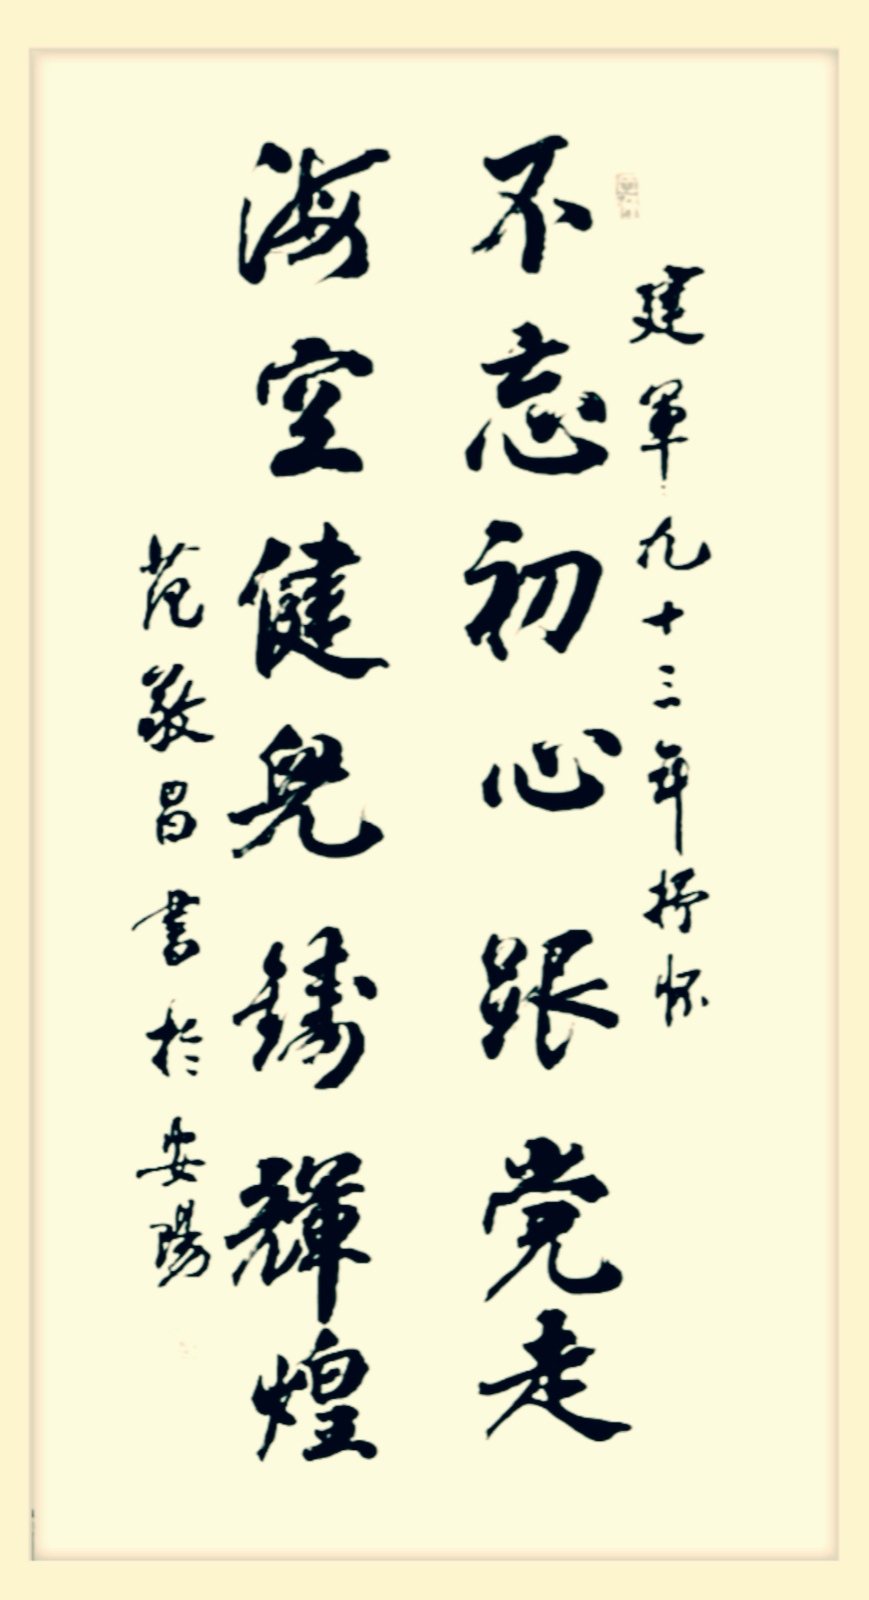 建軍九十三年抒怀
不忘初心跟党走
海空健兒鑄輝煌
范敬昌書於安陽